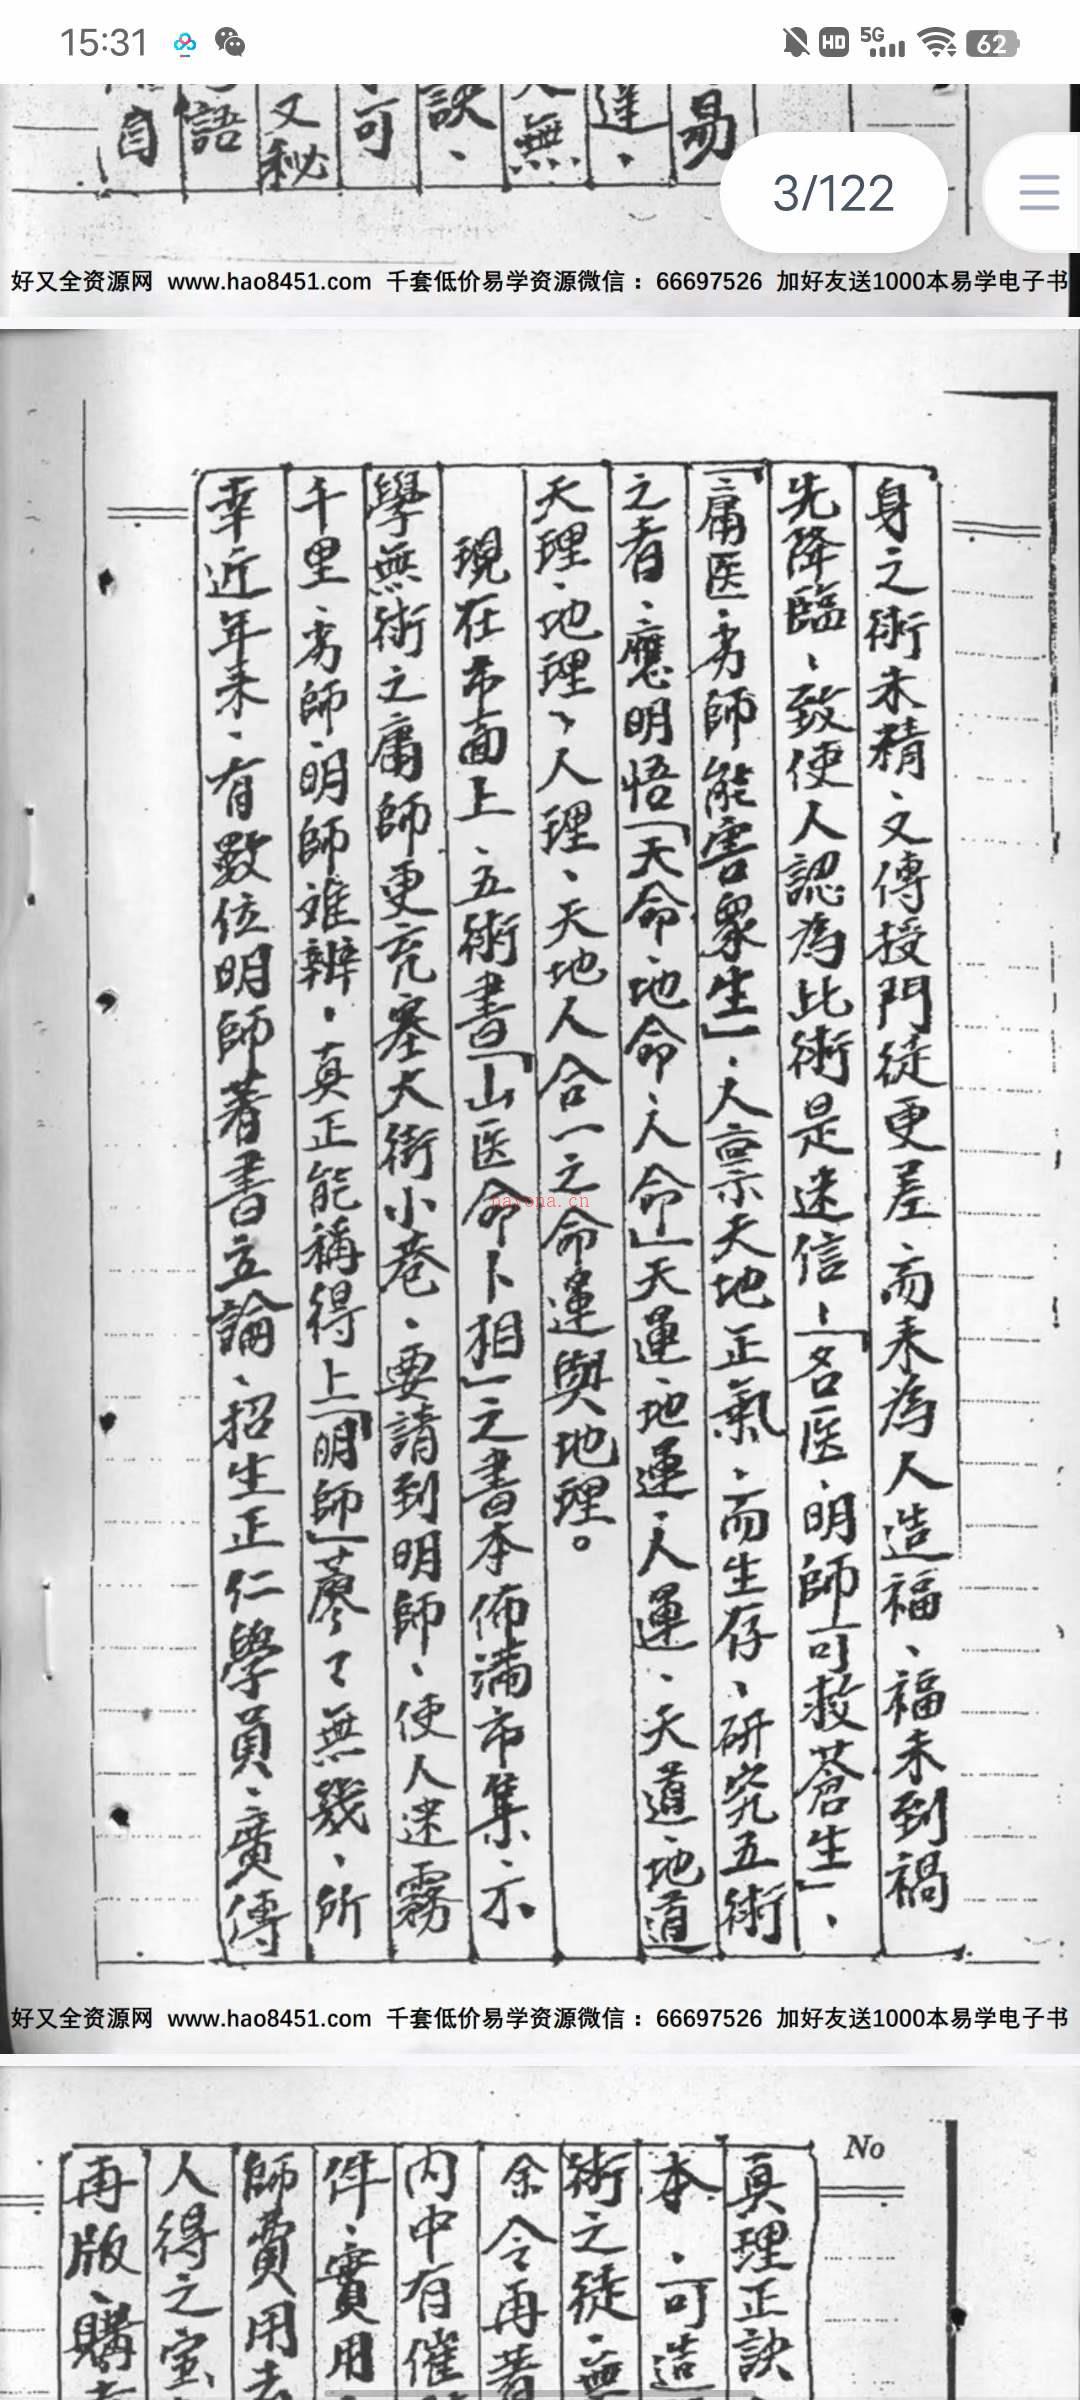 15:31
HD 5G 62
易
達、
無
訣、
可
又秘
語
自
3/122
好又全资源网 www.hao8451.com 千套低价易学资源微信：66697526 加好友送1000本易学电子书
身之術未精、又傳授門徒更差、而來為人造福、福未到禍
先降臨、致使人認為此術是迷信—「名医、明師可救蒼生」、
「庸医、劣師能害衆生」、人禀天地正氣、而生存、研究五術
之者、應明悟「天命、地命、人命」天運、地運、人運、天道、地道
天理、地理、人理、天地人合一之命運與地理。
現在市面上、五術書「山医命卜相」之書本佈滿市集、不
學無術之庸師更充塞大街小巷、要請到明師、使人迷霧
千里、劣師、明師难辨、真正能稱得上「明師」廖了無幾、所
幸近年来、有數位明師著書立論、招生正仁學員、廣傳
nayona.cn
好又全资源网 www.hao8451.com 千套低价易学资源微信：66697526 加好友送1000本易学电子书
No
真理正訣
本、可造
術之徒、無
余今再著
内中有催
件、實用
師費用去
人得之宝
再版、購